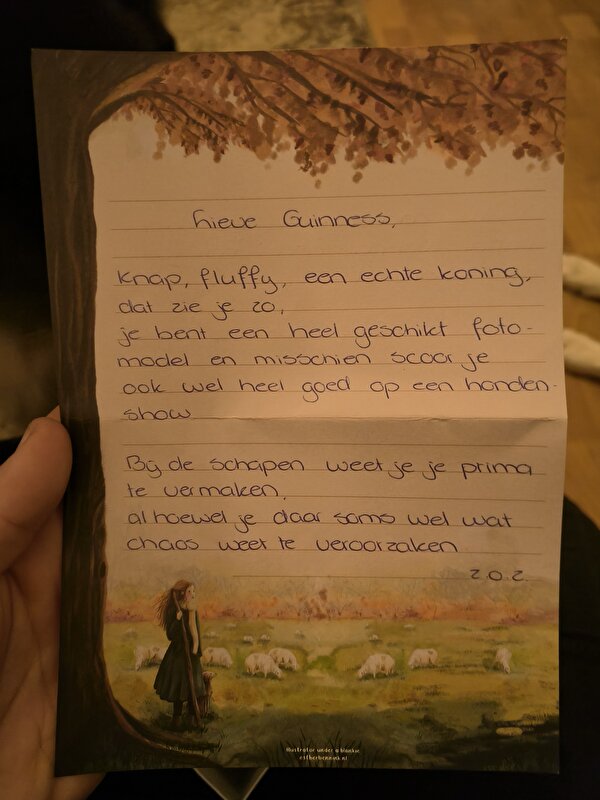 lieve Guinness,
Knap, fluffy, een echte koning,
dat zie je zo,
je bent een heel geschikt foto-
model en misschien scoor je
ook wel heel goed op een honden-
show
Bij de schapen weet je je prima
te vermaken,
alhoewel je daar soms wel wat
chaos weet te veroorzaken
z.o.z.
illustrator under a blankie
estherbennink.nl